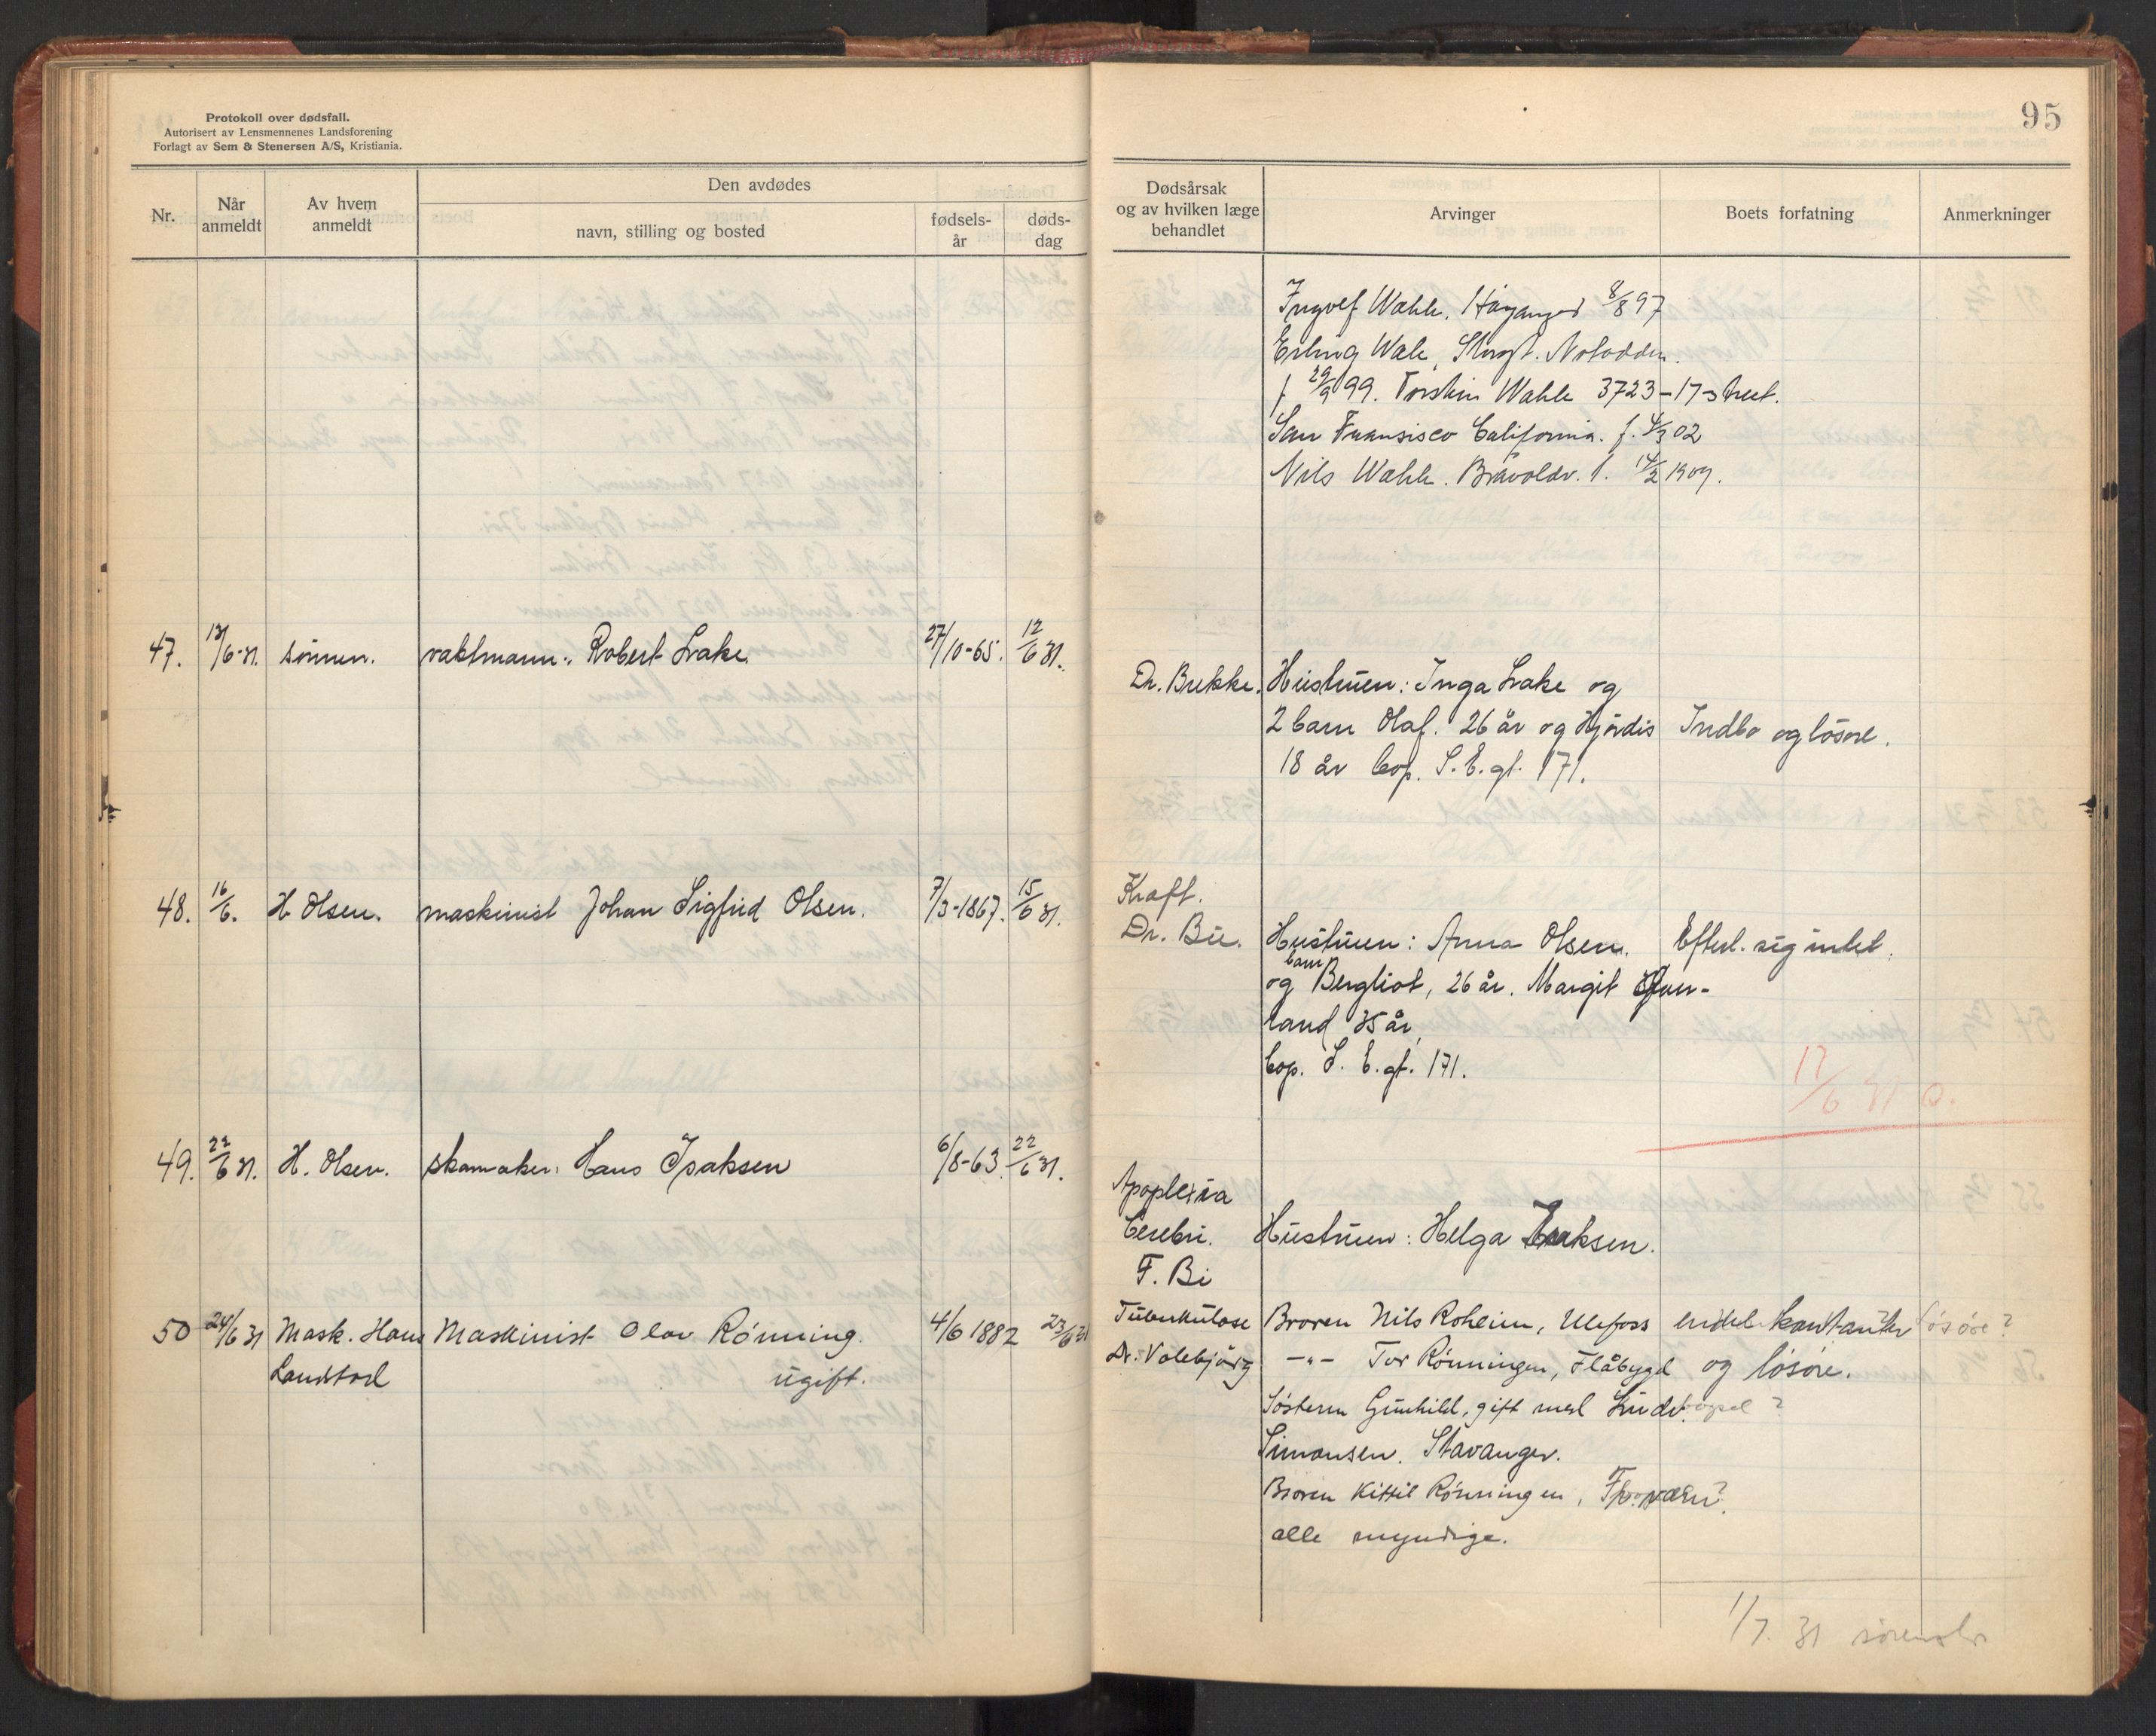 Protokoll over dødsfall.
Autorisert av Lensmennenes Landsforening
Forlagt av Sem & Stenersen A/S, Kristiania.
Nr.
Når anmeldt
Av hvem anmeldt
Den avdødes
navn, stilling og bosted
fødsels-år
døds-dag
47. 13/6-31. sønnen. vaktmann: Robert Lake. 27/10-65. 12/6 31.
48. 16/6. H. Olsen. maskinist Johan Sigfrid Olsen. 7/3-1867. 15/6 31.
49. 22/6 31. H. Olsen. skomaker: Hans Isaksen 6/8-63. 22/6 31.
50 24/6 31 Mask. Hans Maskinist Olav Rönning. 4/6 1882 23/6 31
Landstad ugift.
95
Dødsårsak
og av hvilken læge
behandlet
Arvinger
Boets forfatning
Anmerkninger
Ingolf Wahle. Höyanger 8/8 97
Erling Wale, Notodden.
f 29/9 99. Torstein Wahle 3723-17 street.
San Fransisco California. f. 4/3 02
Nils Wahle. f. 14/2 1909.
Dr. Brekke. Hustruen: Inga Lake og
2 barn Olaf. 26 år og Hjördis Indbo og lösöre.
18 år Cop. S. E. gt. 171.
Kraft.
Dr. Bie. Hustruen: Anna Olsen. Efterl. sig intet.
og barn Bergliot, 26 år. Margit
land 35 år,
Cop. S. E. gt. 171.
17/6 31 O.
Apoplexia
Cerebri. Hustruen: Helga Isaksen.
F. Bi
Tuberkulose Broren Nils Roheim, Ulefoss endel kontanter lösöre?
Dr. Valebjörg -"- Tor Rönningen, Flåbygd og lösöre.
Sösteren Gunhild, gift med Ludv.
Simonsen. Stavanger.
Broren Kittil Rönningen,
alle myndige.
1/7. 31